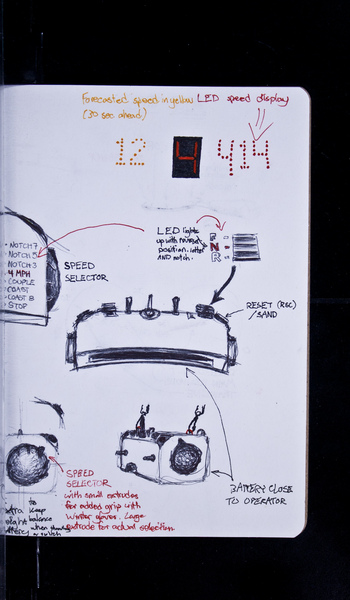 Forecasted speed in yellow LED speed display
(30 sec ahead)
12 4 414
LED lights
up with reverser
position. letter
AND notch.
F
N
R
NOTCH 7
NOTCH 5
NOTCH 3
4 MPH
COUPLE
COAST
COAST B
STOP
SPEED
SELECTOR
RESET (RSC)
/SAND
SPEED
SELECTOR
with small extrudes
for added grip with
winter gloves. Large
extrude for actual selection.
BATTERY CLOSE
TO OPERATOR
extra to
weight keep
balance
battery when